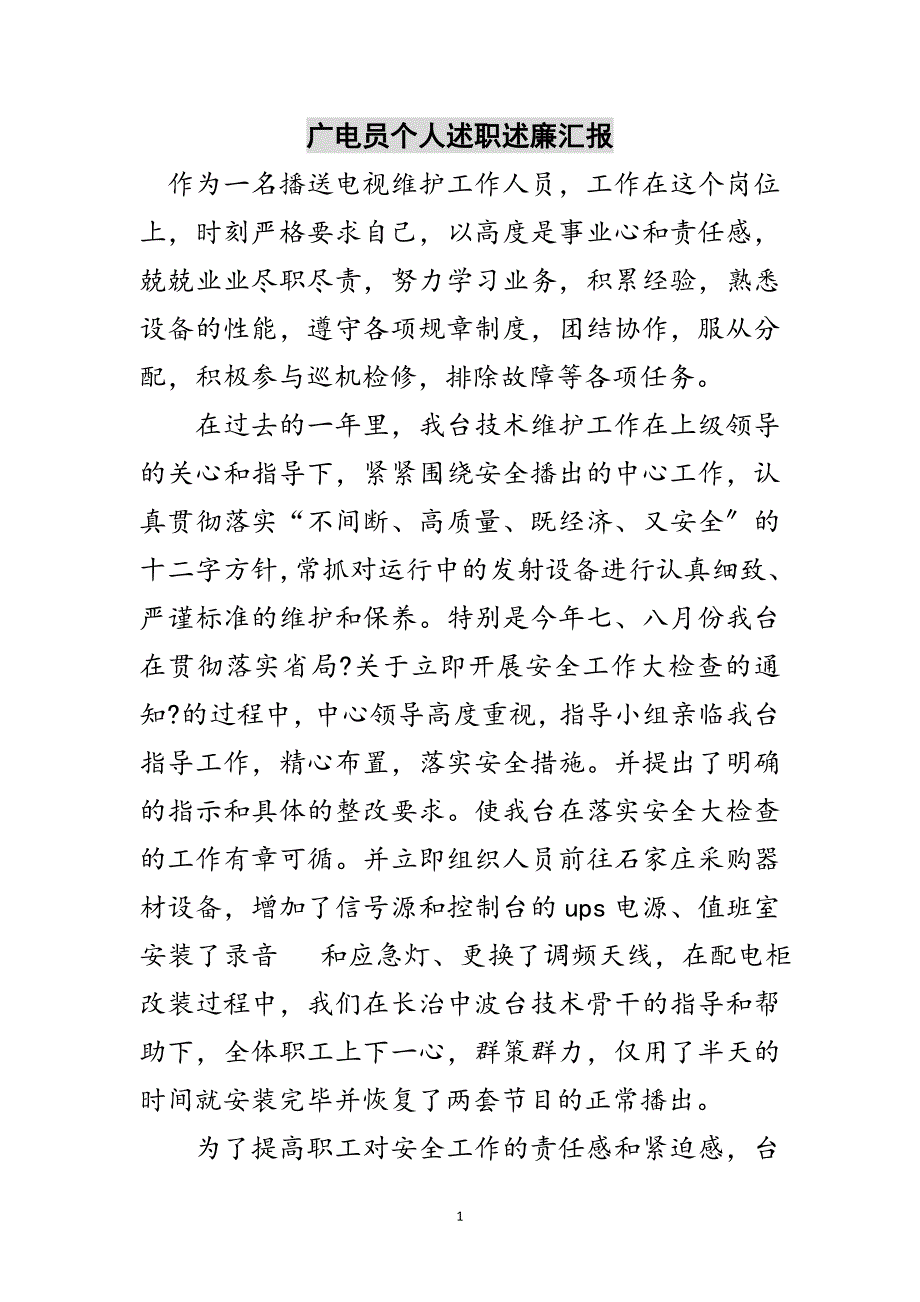 广电员个人述职述廉汇报
作为一名播送电视维护工作人员，工作在这个岗位
上，时刻严格要求自己，以高度是事业心和责任感，
兢兢业业尽职尽责，努力学习业务，积累经验，熟悉
设备的性能，遵守各项规章制度，团结协作，服从分
配，积极参与巡机检修，排除故障等各项任务。
在过去的一年里，我台技术维护工作在上级领导
的关心和指导下，紧紧围绕安全播出的中心工作，认
真贯彻落实“不间断、高质量、既经济、又安全〞的
十二字方针,常抓对运行中的发射设备进行认真细致、
严谨标准的维护和保养。特别是今年七、八月份我台
在贯彻落实省局?关于立即开展安全工作大检查的通
知?的过程中,中心领导高度重视,指导小组亲临我台
指导工作，精心布置，落实安全措施。并提出了明确
的指示和具体的整改要求。使我台在落实安全大检查
的工作有章可循。并立即组织人员前往石家庄采购器
材设备，增加了信号源和控制台的ups电源、值班室
安装了录音 和应急灯、更换了调频天线，在配电柜
改装过程中，我们在长治中波台技术骨干的指导和帮
助下，全体职工上下一心，群策群力，仅用了半天的
时间就安装完毕并恢复了两套节目的正常播出。
为了提高职工对安全工作的责任感和紧迫感，台
1